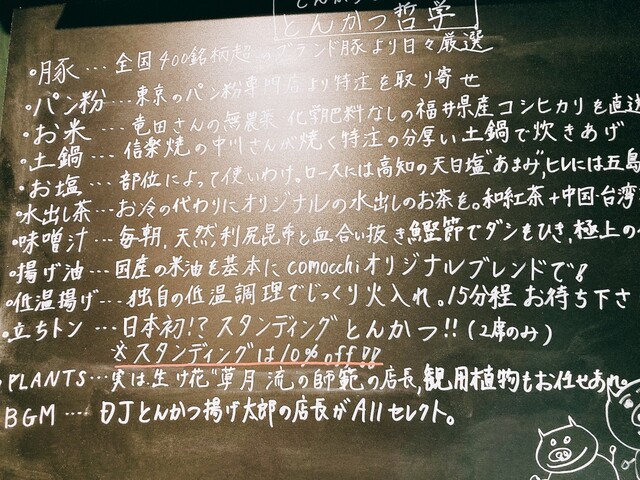 とんかつ哲学
・豚…全国400銘柄超のブランド豚より日々厳選
・パン粉…東京のパン粉専門店より特注を取り寄せ
・お米…竜田さんの無農薬 化学肥料なしの福井県産コシヒカリを直送
・土鍋…信楽焼の中川さんが焼く特注の分厚い土鍋で炊きあげ
・お塩…部位によって使いわけ。ロースには高知の天日塩"あまみ"、ヒレには五島
・水出し茶…お冷の代わりにオリジナルの水出しのお茶を。和紅茶+中国・台湾
・味噌汁…毎朝、天然利尻昆布と血合い抜き鰹節でダシをひき、極上の
・揚げ油…国産の米油を基本にcomocchiオリジナルブレンドで
・低温揚げ…独自の低温調理でじっくり火入れ。15分程お待ち下さ
・立ちトン…日本初!?スタンディングとんかつ!!(2席のみ)
※スタンディングは10%off!!
・PLANTS…実は生け花"草月流の師範の店長、観用植物もお任せあれ。
・BGM…DJとんかつ揚げ太郎の店長がAllセレクト。